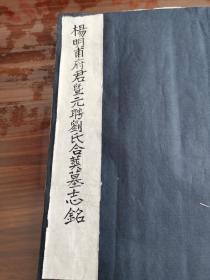 楊明甫府君暨元聘劉氏合葬墓志銘